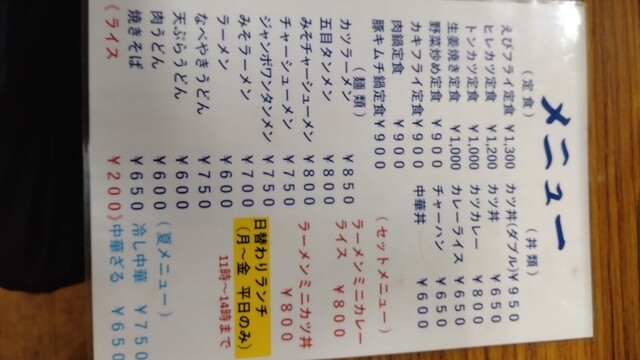 メニュー
(定食)
えびフライ定食 ¥1,300
ヒレカツ定食 ¥1,200
トンカツ定食 ¥1,000
生姜焼き定食 ¥1,000
野菜炒め定食 ¥900
カキフライ定食 ¥900
肉鍋定食 ¥900
豚キムチ鍋定食 ¥900
(丼類)
カツ丼(ダブル) ¥950
カツ丼 ¥650
カツカレー ¥800
カレーライス ¥650
チャーハン ¥650
中華丼 ¥600
(麺類)
カツラーメン ¥850
五目タンメン ¥800
みそチャーシューメン ¥800
チャーシューメン ¥750
ジャンボワンタンメン ¥750
みそラーメン ¥700
ラーメン ¥600
なべやきうどん ¥750
天ぷらうどん ¥600
肉うどん ¥600
焼きそば ¥650
《ライス ¥200》
(セットメニュー)
ラーメンミニカレー
ライス ¥800
ラーメンミニカツ丼
¥800
日替わりランチ
(月～金 平日のみ)
11時～14時まで
(夏メニュー)
冷し中華 ¥750
中華ざる ¥650